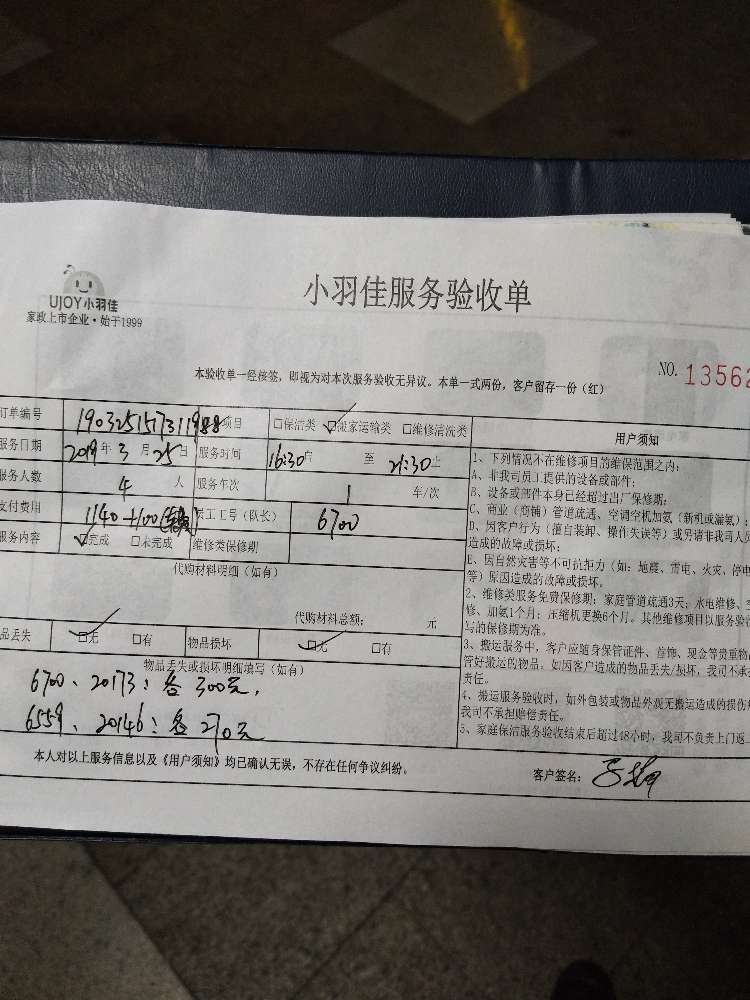 UJOY小羽佳
家政上市企业·始于1999
小羽佳服务验收单
本验收单一经核签,即视为对本次服务验收无异议。本单一式两份,客户留存一份(红)
NO. 13562
订单编号 190325157311988 项目 □保洁类 ☑搬家运输类 □维修清洗类
服务日期 2019年3月25日 服务时间 16:30 至 21:30
服务人数 4 人 服务车次 1 车/次
支付费用 1140+100 员工工号(队长) 6700
服务内容 ☑完成 □未完成 维修类保修期
代购材料明细(如有)
代购材料总额: 元
品丢失 ☑无 □有 物品损坏 ☑无 □有
物品丢失或损坏明细填写(如有)
6700、20173:各300元,
6559、20146:各270元
本人对以上服务信息以及《用户须知》均已确认无误,不存在任何争议纠纷。
客户签名:
用户须知
1、下列情况不在维修项目的维保范围之内:
A、非我司员工提供的设备或部件;
B、设备或部件本身已经超过出厂保修期;
C、商业(商铺)管道疏通、空调空机加氨(新机或漏氨);
D、因客户行为(擅自装卸、操作失误等)或另请非我司人员
造成的故障或损坏;
E、因自然灾害等不可抗拒力(如:地震、雷电、火灾、停电
等)原因造成的故障或损坏。
2、维修类服务免费保修期:家庭管道疏通3天;水电维修、空
修、加氨1个月;压缩机更换6个月。其他维修项目以服务验收
写的保修期为准。
3、搬运服务中,客户应随身保管证件、首饰、现金等贵重物品
管好搬运的物品,如因客户造成的物品丢失/损坏,我司不承
责任。
4、搬运服务验收时,如外包装或物品外观无搬运造成的损伤
我司不承担赔偿责任。
5、家庭保洁服务验收结束后超过48小时,我司不负责上门返